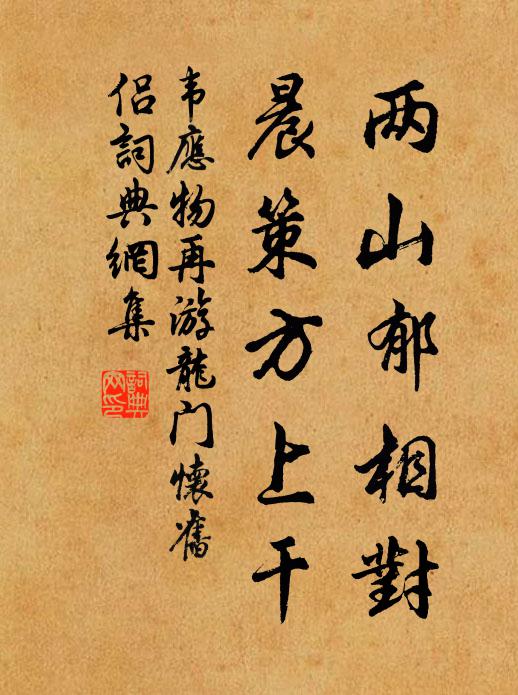 两山郁相對
晨策方上干
韦應物再游龍门懷舊
侣詞典網集
詞典網印